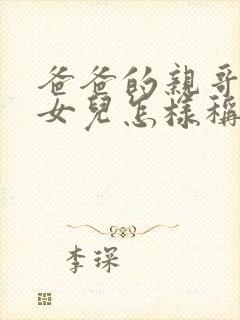 爸爸的親哥
女兒怎樣稱
李琛